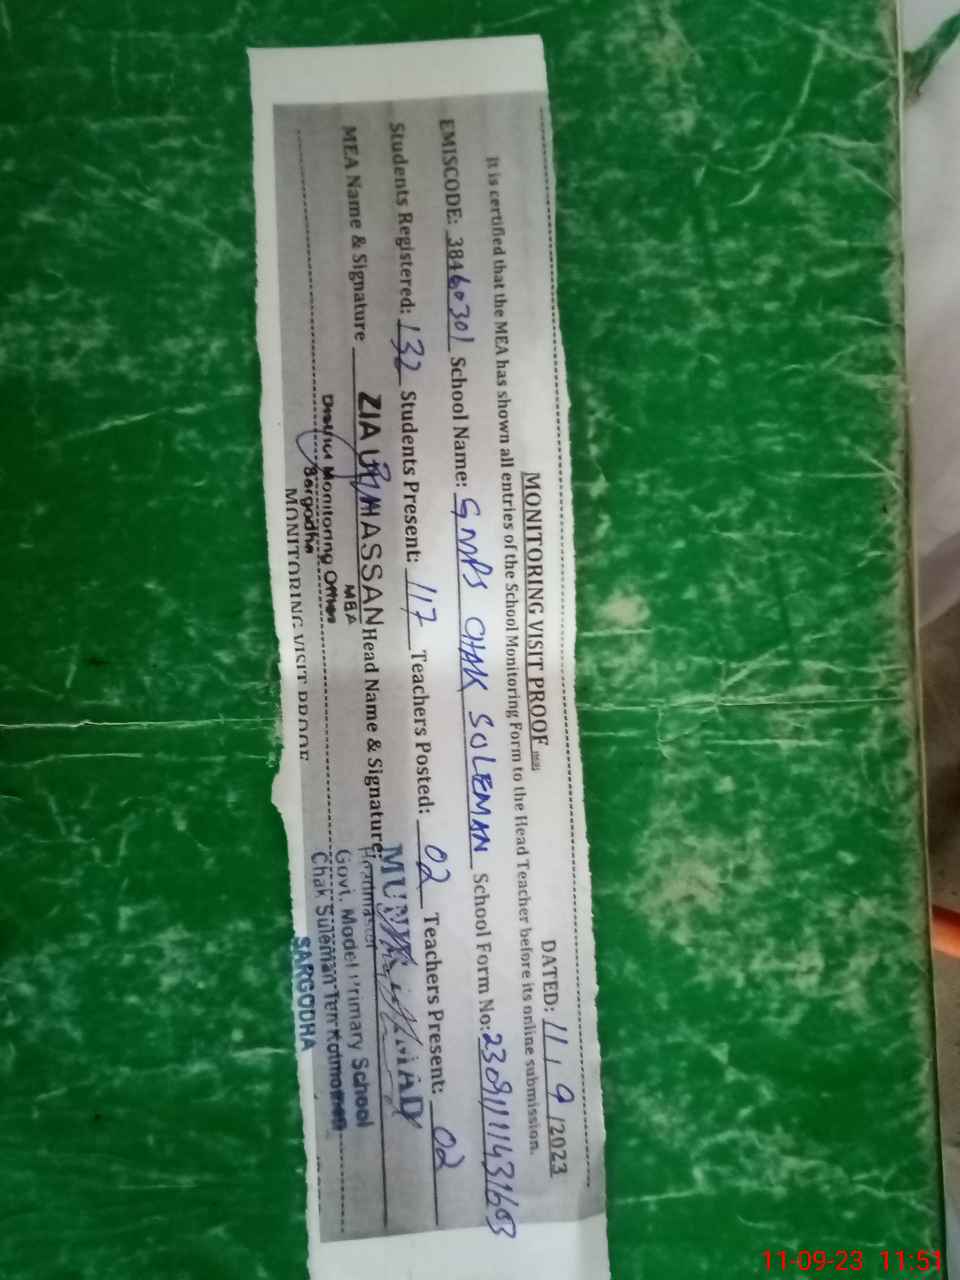 MONITORING VISIT PROOF
DATED: 11 / 9 /2023
It is certified that the MEA has shown all entries of the School Monitoring Form to the Head Teacher before its online submission.
EMISCODE: 38460301 School Name: GMPS CHAK SOLEMAN School Form No: 23091111431603
Students Registered: 132 Students Present: 117 Teachers Posted: 02 Teachers Present: 02
MEA Name & Signature ZIA UL HASSAN Head Name & Signature:
MEA
District Monitoring Officer
Sargodha
Headmaster
Govt. Model Primary School
Chak Suleman
SARGODHA
MONITORING VISIT PROOF
11-09-23 11:51